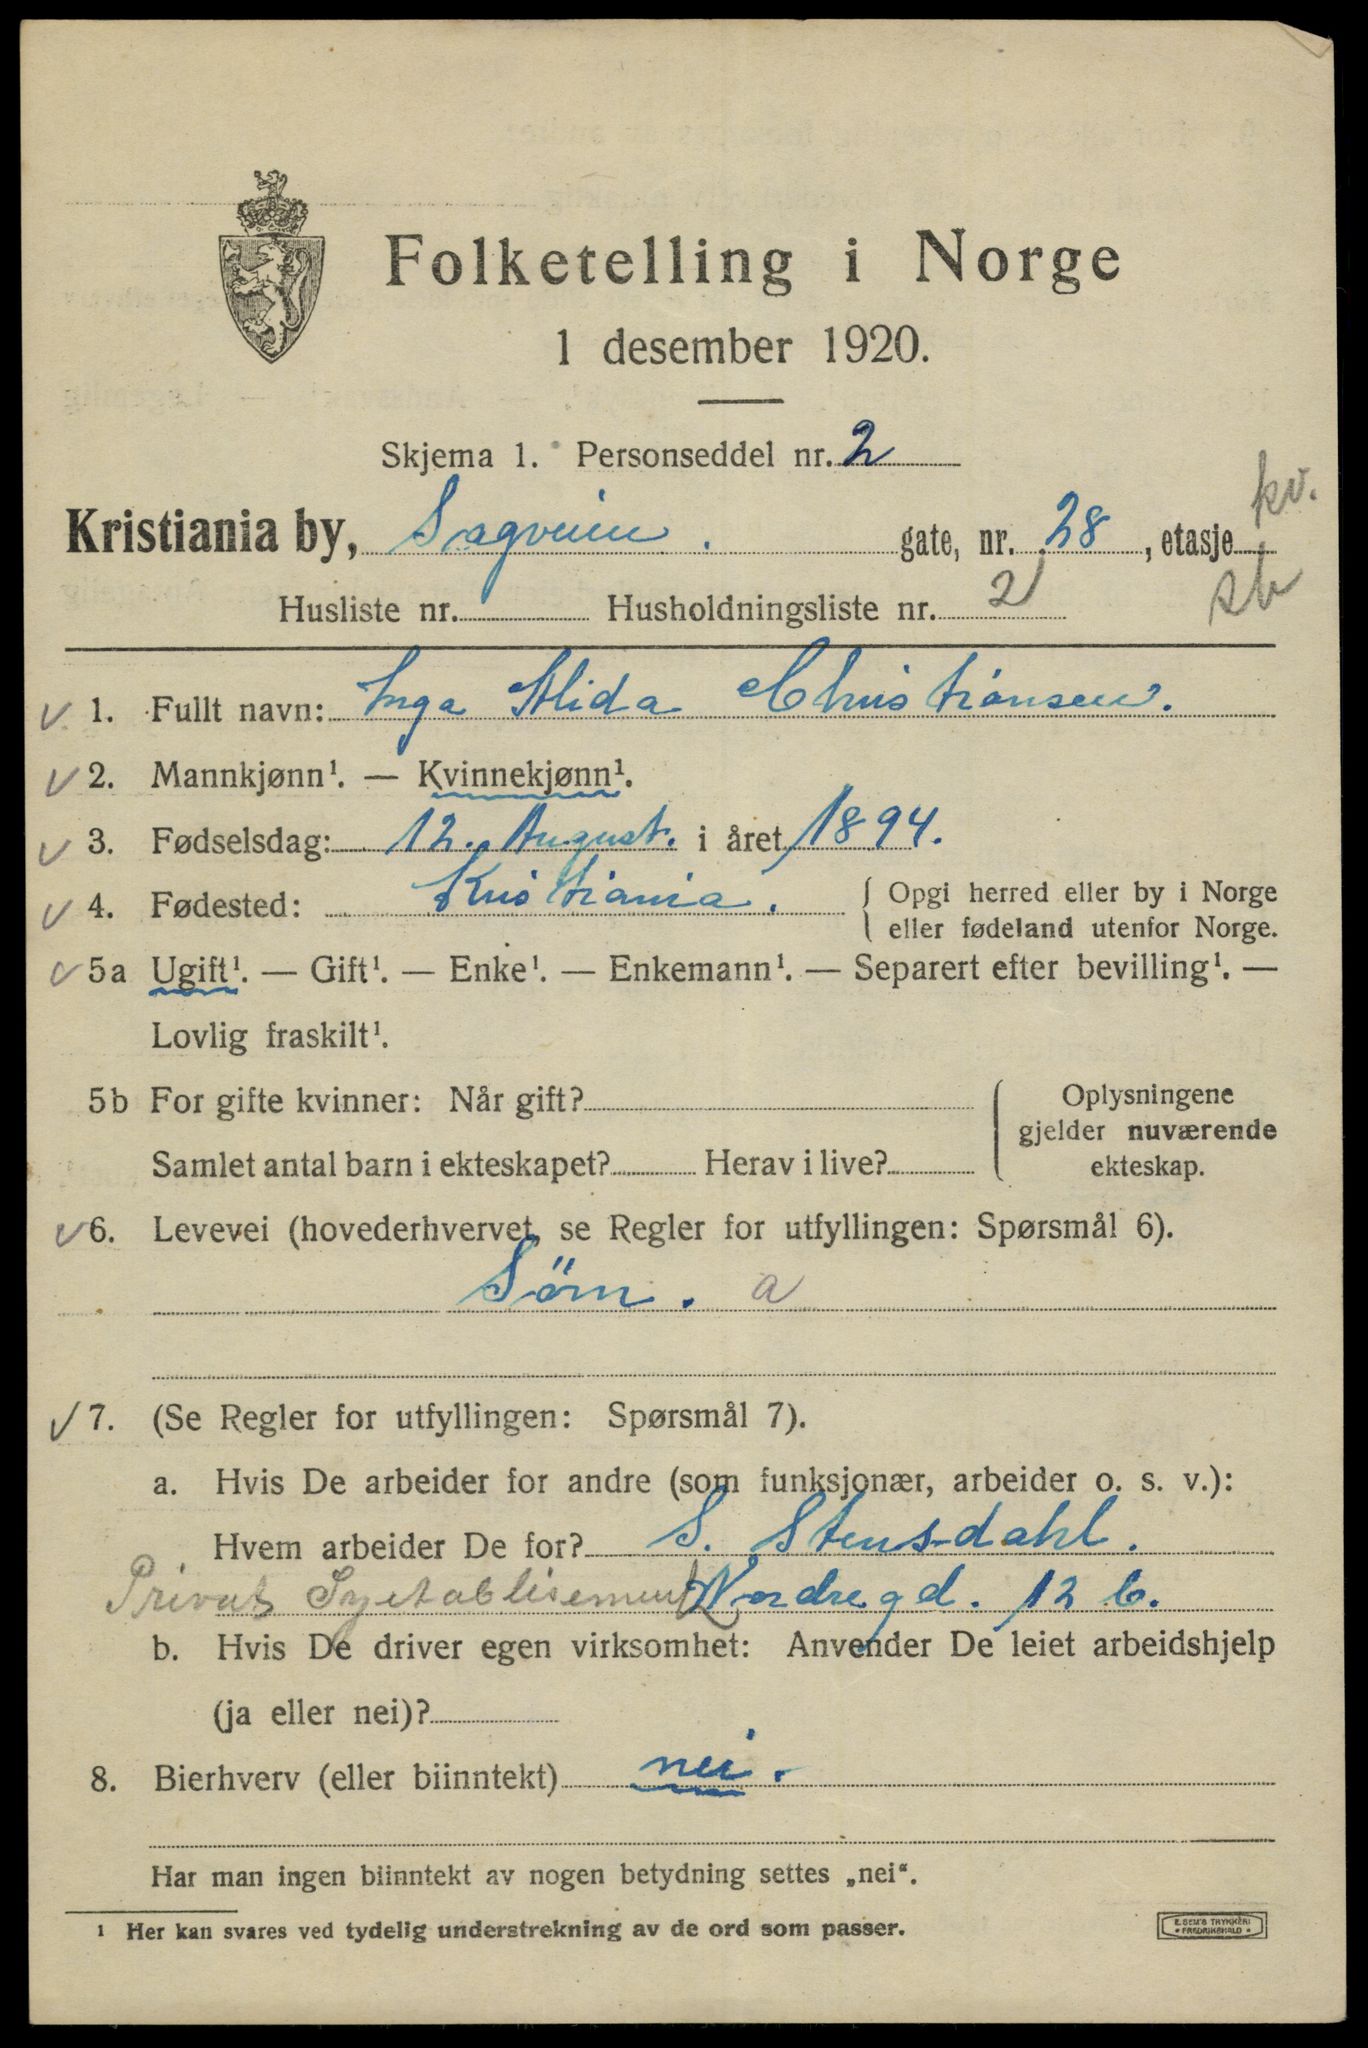 Folketelling i Norge
1 desember 1920.
Skjema 1. Personseddel nr. 2
kv.
Kristiania by, Sagveien. gate, nr. 28, etasje
Husliste nr. Husholdningsliste nr. 2
1. Fullt navn: Inga Alida Christiansen.
2. Mannkjønn¹. — Kvinnekjønn¹.
3. Fødselsdag: 12. August. i året 1894.
4. Fødested: Kristiania. { Opgi herred eller by i Norge
eller fødeland utenfor Norge.
5a Ugift¹. — Gift¹. — Enke¹. — Enkemann¹. — Separert efter bevilling¹. —
Lovlig fraskilt¹.
5b For gifte kvinner: Når gift? Oplysningene
gjelder nuværende
Samlet antal barn i ekteskapet? Herav i live? ekteskap.
6. Levevei (hovederhvervet, se Regler for utfyllingen: Spørsmål 6).
Söm. a
7. (Se Regler for utfyllingen: Spørsmål 7).
a. Hvis De arbeider for andre (som funksjonær, arbeider o. s. v.):
Hvem arbeider De for? S. Stensdahl.
Privat Syetablisement Nordregd. 12 b.
b. Hvis De driver egen virksomhet: Anvender De leiet arbeidshjelp
(ja eller nei)?
8. Bierhverv (eller biinntekt) nei.
Har man ingen biinntekt av nogen betydning settes „nei“.
¹ Her kan svares ved tydelig understrekning av de ord som passer.
E. SEM'S TRYKKERI
FREDRIKSHALD